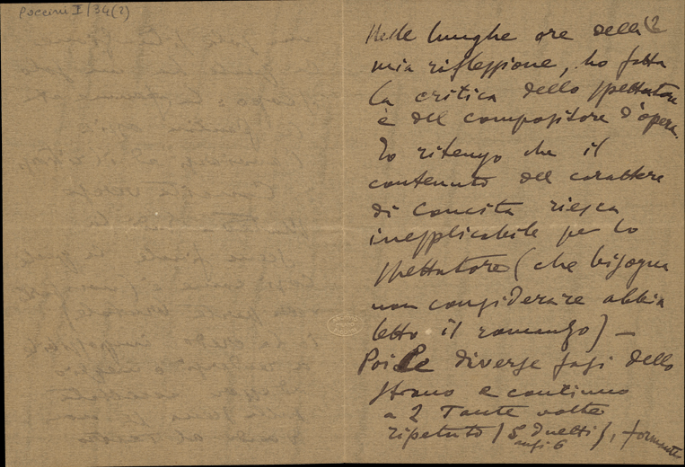 Puccini I/34(2)
(2
Nelle lunghe ore della
mia riflessione, ho fatta
la critica dello spettatore
e del compositore d'opera.
Io ritengo che il
contenuto del carattere
di Concita riesca
inesplicabile per lo
spettatore (che bisogna
non considerare abbia
letto il romanzo) —
Poi le diverse fasi dello
strano e continuo
a 2 Tante volte
ripetuto (5 Duetti
anzi 6), formante